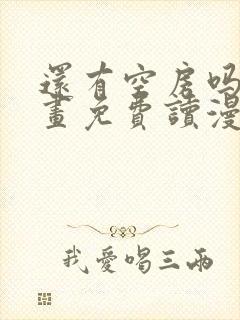 還有空房吗
畫免費讀漫
我愛唱三兩